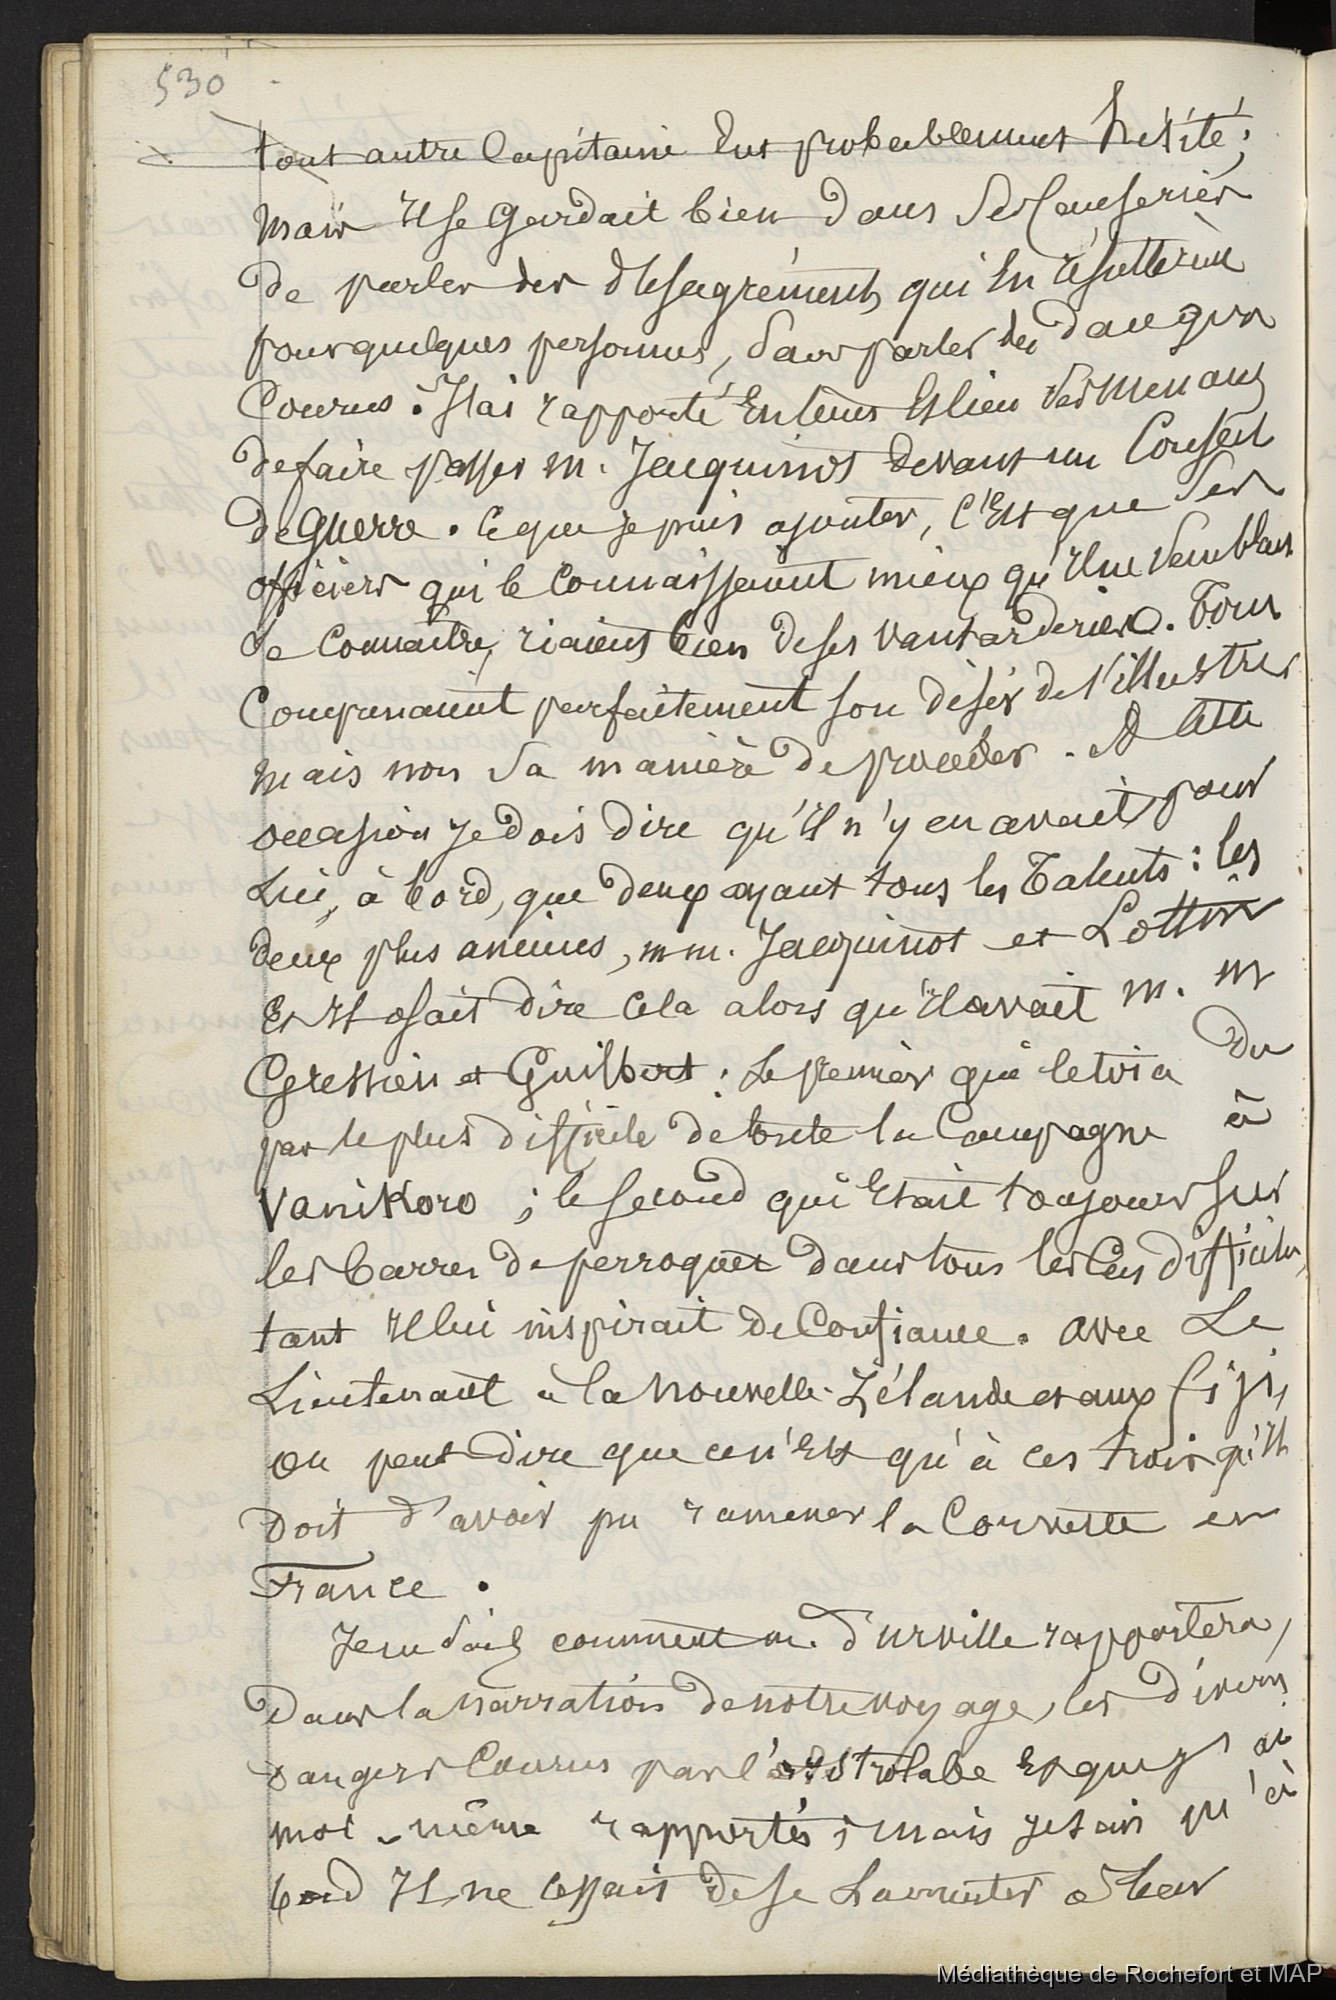 530
tout autre Capitaine Eut probablement hésité ;
mais Il se Gardait bien dans Ses Causeries
de parler des désagréments qui En résultèrent
pour quelques personnes, Sans parler des dangers
Courus. J'ai rapporté En tems Et lieu Ses menaces
de faire passer m. Jacquinot devant un Conseil
de Guerre. Ce que je puis ajouter, C'Est que Ses
officiers qui le Connaissaient mieux qu'Il ne Semblait
le Connaitre, riaient bien de ses vantarderies. Tous
Comprenaient parfaitement son désir de s'illustrer
mais non Sa manière de procéder. A Cette
occasion je dois dire qu'il n'y en avait pour
Lui, à bord, que deux ayant tous les Talents : les
deux plus anciens, m m. Jacquinot et Lottin
Et Il osait dire Cela alors qu'Il avait m. m
Gressien et Guilbert : Le premier qui le tira du
pas le plus difficile de toute la Campagne à
Vanikoro ; le second qui Etait toujours sur
les barres de perroquet dans tous les Cas difficiles,
tant Il lui inspirait de Confiance. avec Le
Lieutenant à la Nouvelle-Zélande et aux fiji,
on peut dire que ce n'Est qu'à ces trois qu'Il
doit d'avoir pu ramener la Corvette en
France.
Je ne Sais comment m. d'urville rapportera,
Dans la narration de notre voyage, les divers
dangers Courus par l'astrolabe Et que j'ai
moi-même rapportés ; mais je sais qu'à
bord Il ne Cessait de se Lamenter